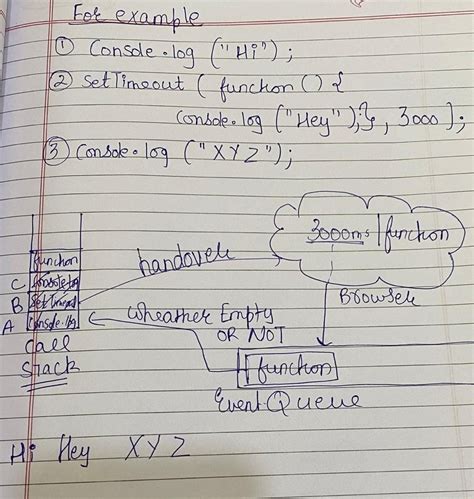 For example
① Console.log ("Hi");
② setTimeout ( function () {
console.log ("Hey");}, 3000 );
③ Console.log ("XYZ");
3000ms | function
Browser
handover
function
C
B
A Console.log
Call
Stack
Wheather Empty
OR NOT
function
Event Queue
Hi Hey XYZ